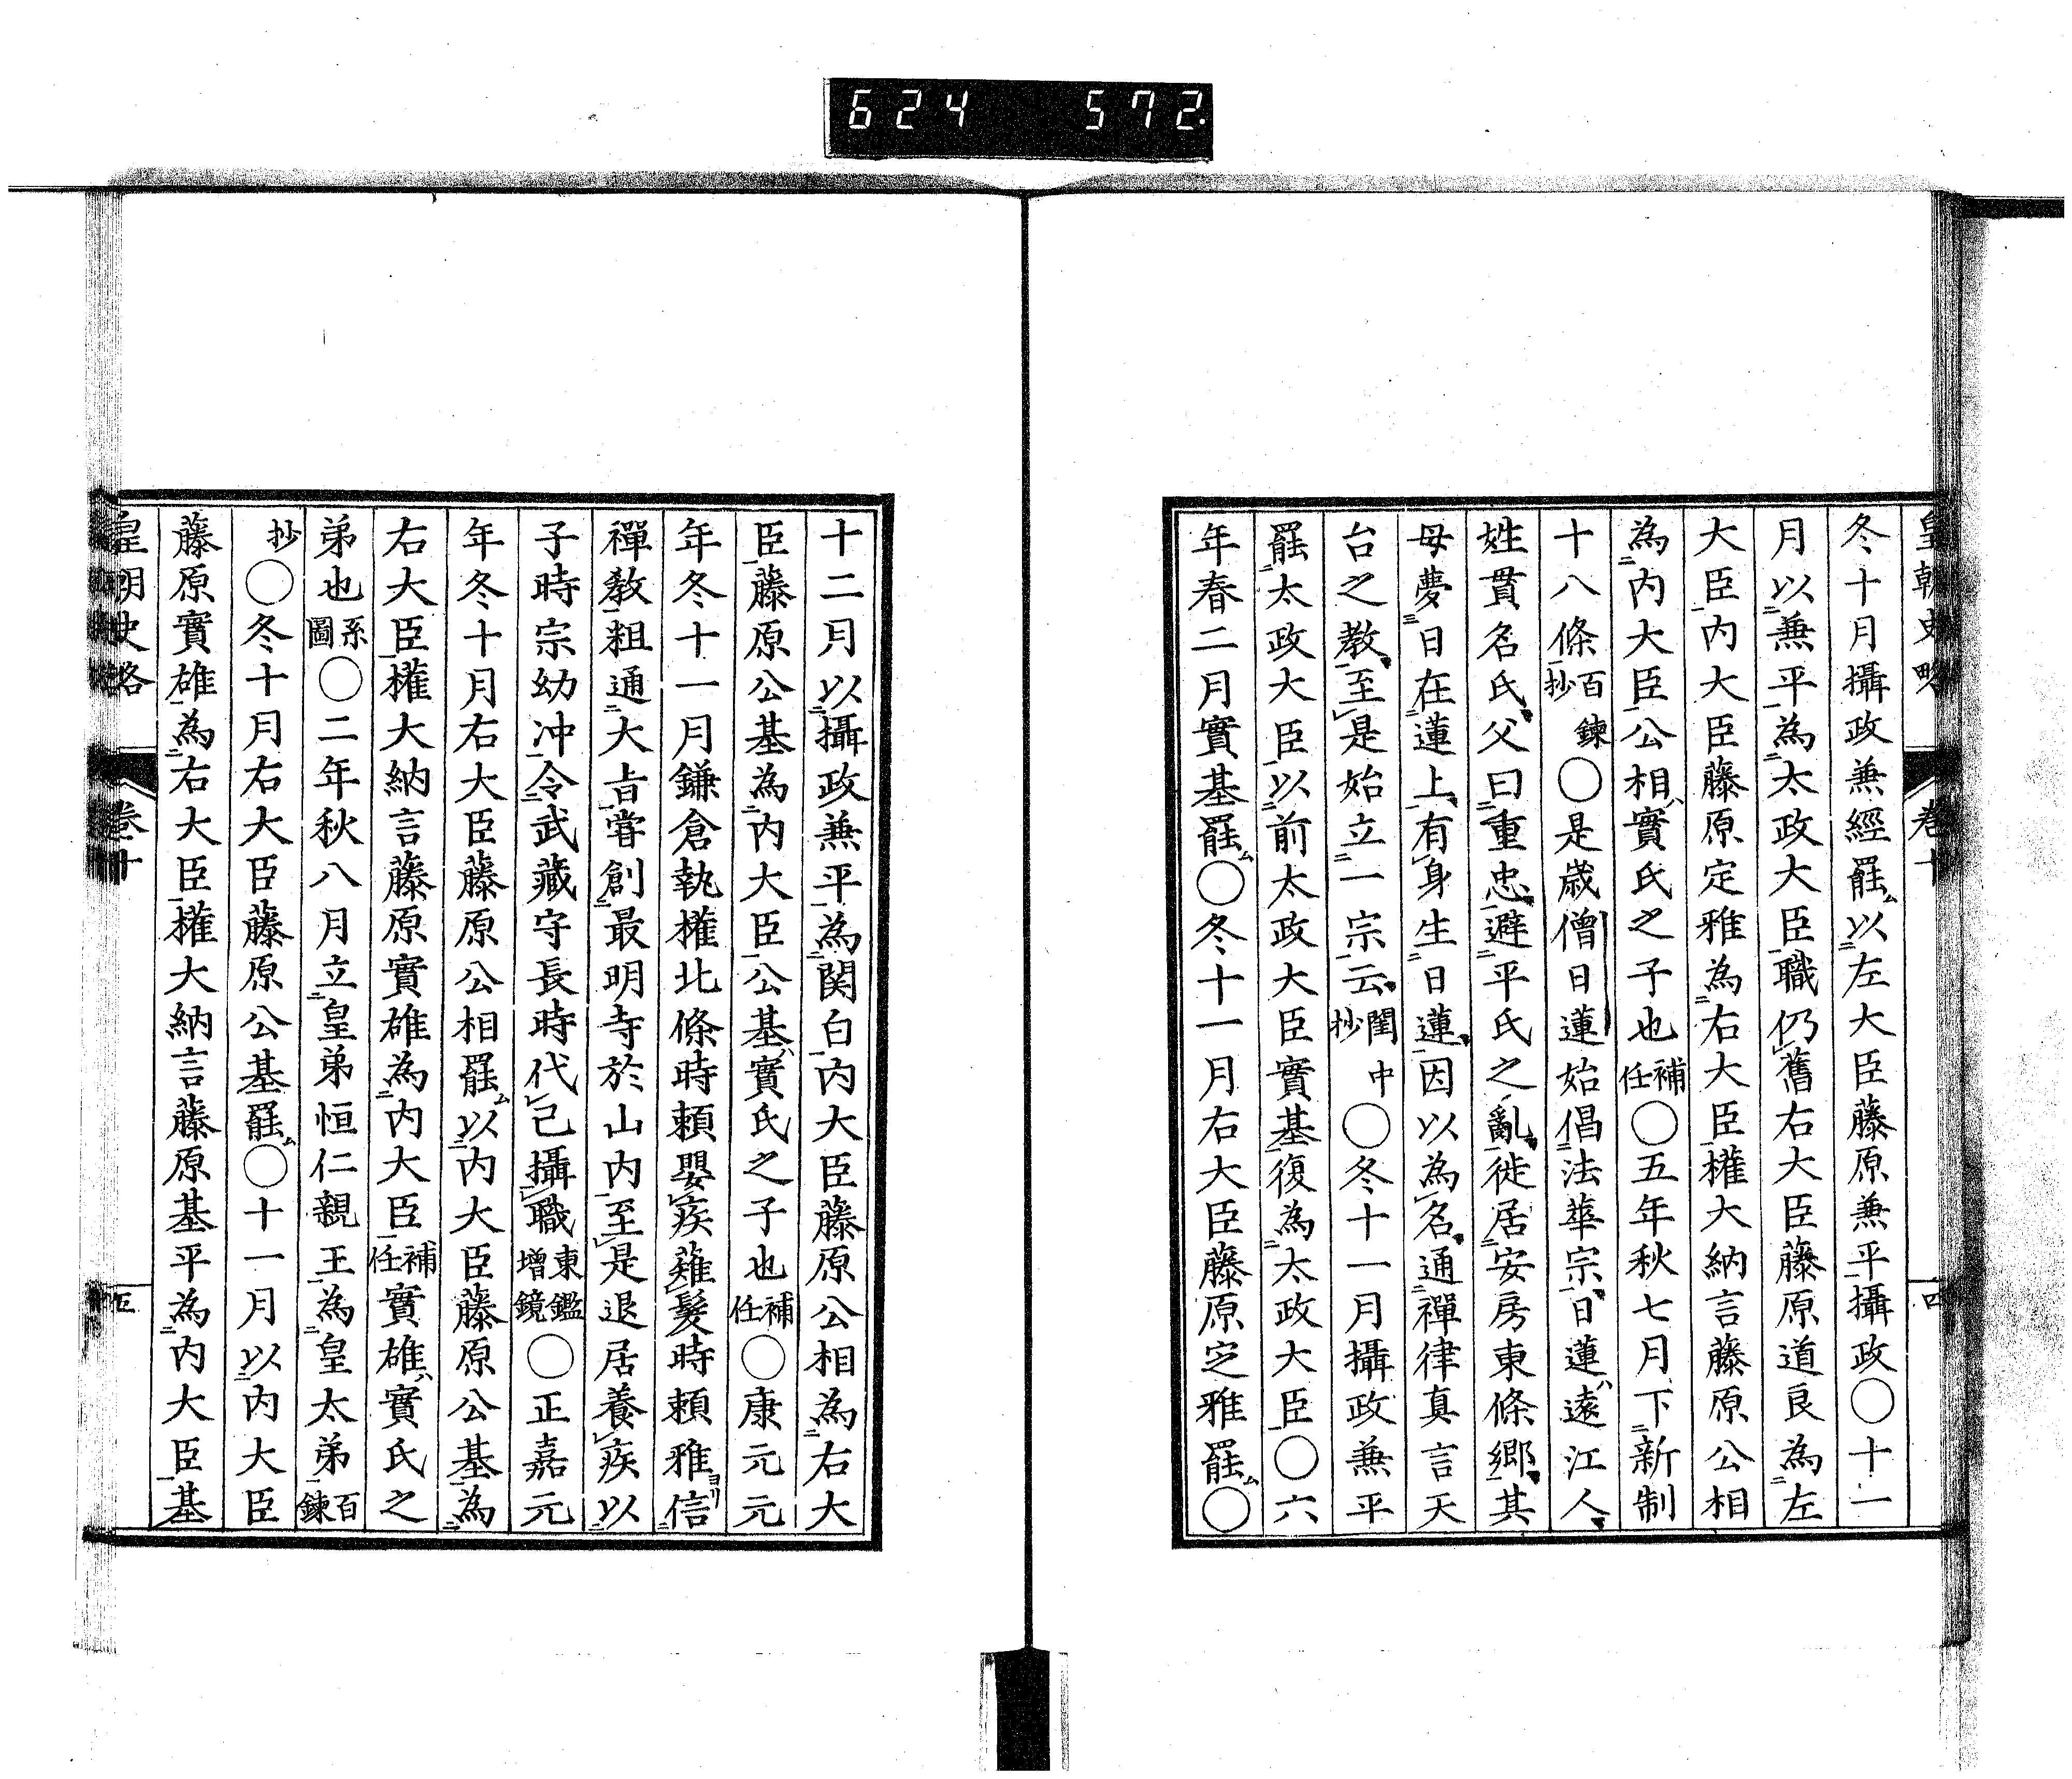 624 572
皇朝史略 卷十 四
冬十月攝政兼經罷以左大臣藤原兼平攝政○十一
月以兼平為太政大臣職仍舊右大臣藤原道良為左
大臣内大臣藤原定雅為右大臣權大納言藤原公相
為内大臣公相實氏之子也補任○五年秋七月下新制
十八條百鍊抄○是歲僧日蓮始倡法華宗日蓮遠江人
姓貫名氏父曰重忠避平氏之亂徙居安房東條鄉其
母夢日在蓮上有身生日蓮因以為名通禪律真言天
台之教至是始立一宗云閏中抄○冬十一月攝政兼平
罷太政大臣以前太政大臣實基復為太政大臣○六
年春二月實基罷○冬十一月右大臣藤原定雅罷○
十二月以攝政兼平為関白内大臣藤原公相為右大
臣藤原公基為内大臣公基實氏之子也補任○康元元
年冬十一月鎌倉執權北條時頼嬰疾薙髮時頼雅信
禪教粗通大旨嘗創最明寺於山内至是退居養疾以
子時宗幼冲令武藏守長時代己攝職東鑑增鏡○正嘉元
年冬十月右大臣藤原公相罷以内大臣藤原公基為
右大臣權大納言藤原實雄為内大臣補任實雄實氏之
弟也系圖○二年秋八月立皇弟恒仁親王為皇太弟百鍊
抄○冬十月右大臣藤原公基罷○十一月以内大臣
藤原實雄為右大臣權大納言藤原基平為内大臣基
皇朝史略 卷十 五